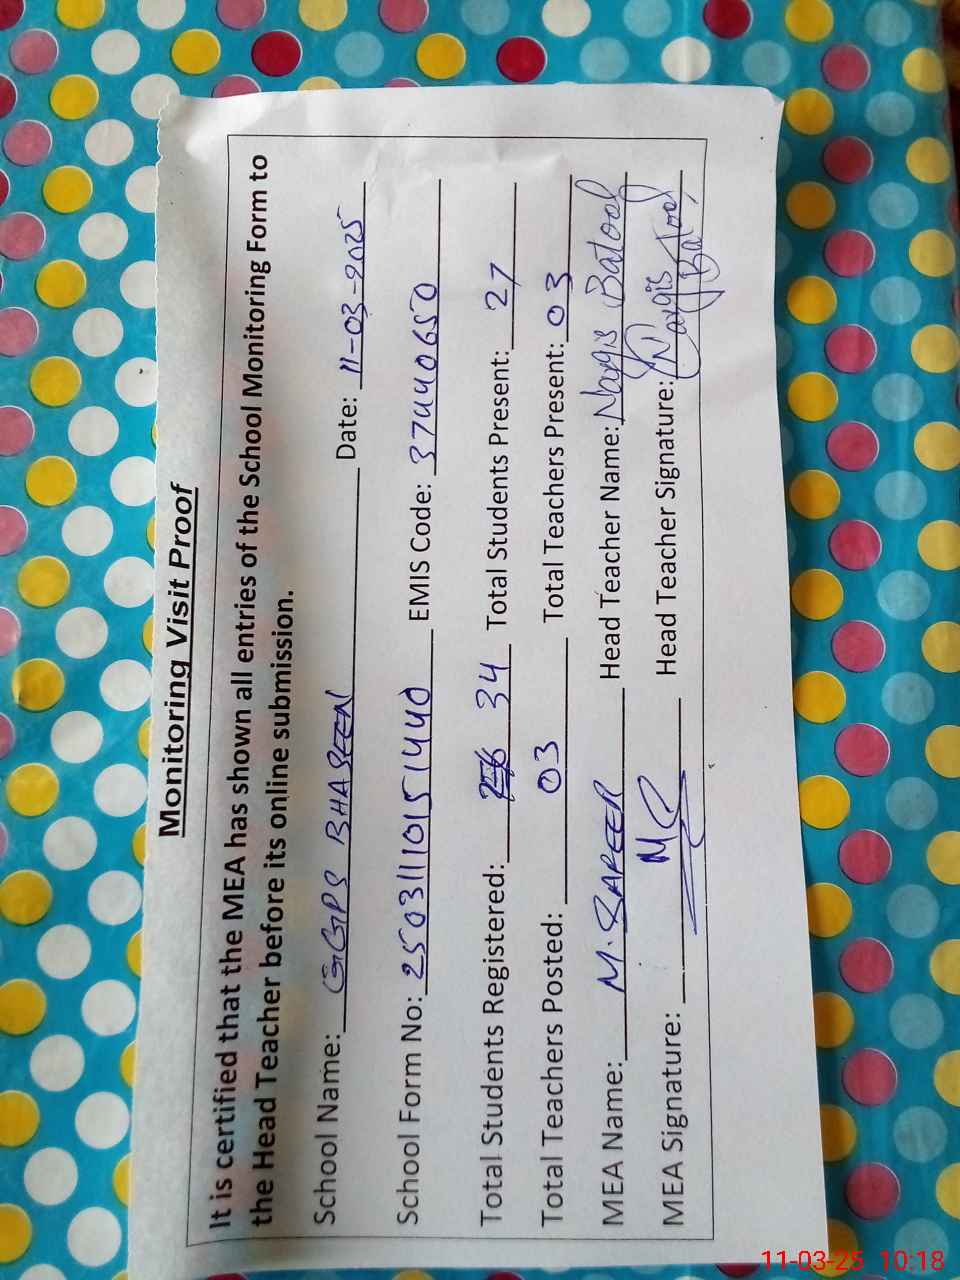 Monitoring Visit Proof
It is certified that the MEA has shown all entries of the School Monitoring Form to
the Head Teacher before its online submission.
School Name: GGPS BHASEEN Date: 11-03-2025
School Form No: 25031110151440 EMIS Code: 37440650
Total Students Registered: 34 Total Students Present: 27
Total Teachers Posted: 03 Total Teachers Present: 03
MEA Name: M. Head Teacher Name: Nargis Batool
MEA Signature: Head Teacher Signature: Nargis Batool
11-03-25 10:18